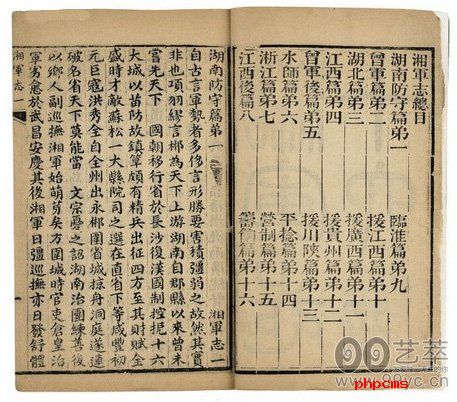 湘軍志總目
湖南防守篇第一 臨淮篇第九
曾軍篇第二 援江西篇第十
湖北篇第三 援廣西篇第十一
江西篇第四 援貴州篇第十二
曾軍後篇第五 援川陝篇第十三
水師篇第六 平捻篇第十四
浙江篇第七 營制篇第十五
江西後篇第八 籌餉篇第十六
湖南防守篇第一 湘軍志一
自古言軍勢者多侈言形勝要害積彊弱之故然其實
非也項羽繆言郴為天下上游湖南自郡縣以來曾未
嘗先天下 國朝移行省於長沙後漢國制控扼十六
大城以苗防故鎮筸頗有精兵出征四方至其財賦全
盛時才敵蘇松一大縣院司之選在直省下等咸豐初
元巨寇洪秀全自全州出永郴圍省城掠舟洞庭遂連
破名省天下莫能當 文宗憂之詔湖南治團練善後
以鄉人副巡撫湘軍始萌芽矣方圍城時官吏倉皇治
軍旁愈於武昌安慶其後湘軍日彊巡撫亦日發舒體
湘軍志一
99艺萃
www.99yc.cn
phpcms